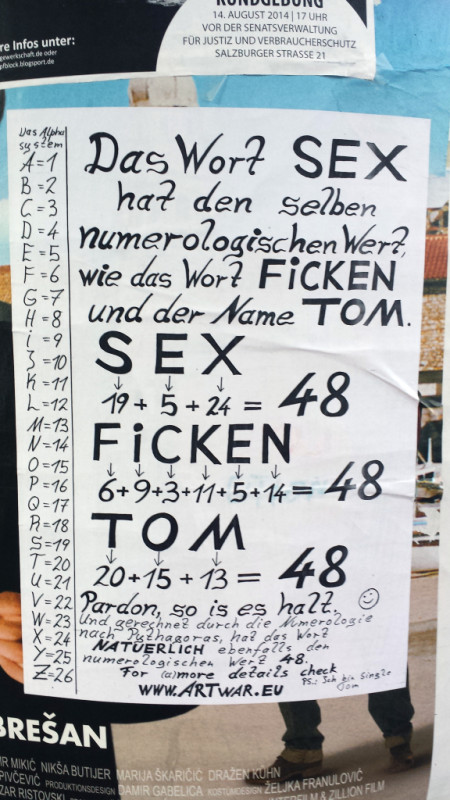 KUNDGEBUNG
14. AUGUST 2014 | 17 UHR
VOR DER SENATSVERWALTUNG
FÜR JUSTIZ UND VERBRAUCHERSCHUTZ
SALZBURGER STRASSE 21
re Infos unter:
gewerkschaft.de oder
pfblock.blogspot.de
Das Alpha
system
A=1
B=2
C=3
D=4
E=5
F=6
G=7
H=8
i=9
J=10
K=11
L=12
M=13
N=14
O=15
P=16
Q=17
R=18
S=19
T=20
U=21
V=22
W=23
X=24
Y=25
Z=26
Das Wort SEX
hat den selben
numerologischen Wert,
wie das Wort FiCKEN
und der Name TOM.
SEX
19+5+24=48
FiCKEN
6+9+3+11+5+14=48
TOM
20+15+13=48
Pardon, so is es halt.
Und gerechnet durch die Numerologie
nach Pythagoras, hat das Wort
NATÜERLICH ebenfalls den
numerologischen Wert 48.
For (a)more details check
WWW.ARTWAR.EU
PS.: Ich bin Single
Tom
BREŠAN
MIR MIKIĆ NIKŠA BUTIJER MARIJA ŠKARIČIĆ DRAŽEN KÜHN
PIVČEVIĆ PRODUKTIONSDESIGN DAMIR GABELICA KOSTÜMDESIGN ŽELJKA FRANULOVIĆ
ZAR RISTOVSKI & ZILLION FILM